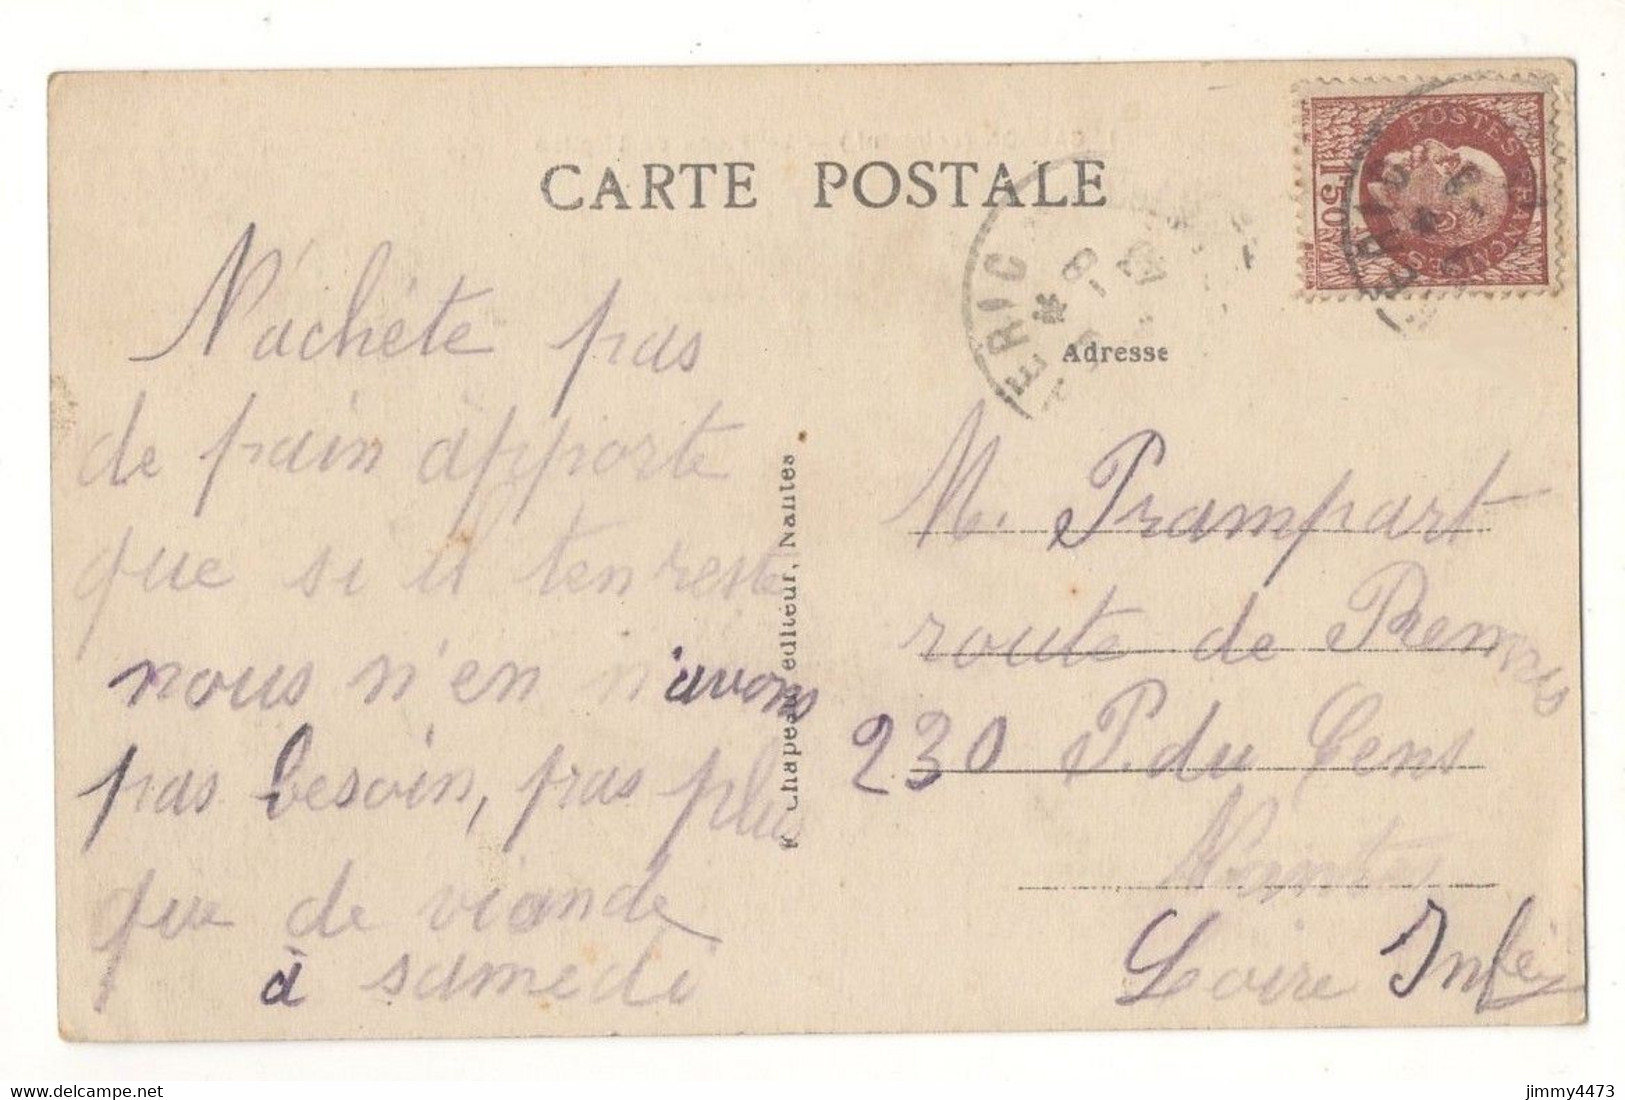 CARTE POSTALE
POSTES FRANÇAISES
1F50
ERIC
Adresse
N'achète pas
de pain apporte
que si il t'en reste
nous n'en n'avons
pas besoin, pas plus
que de viande
à samedi
Chapeau éditeur, Nantes
M. Prampart
route de Rennes
230 P. du Cens
Nantes
Loire Infér
jimmy4473